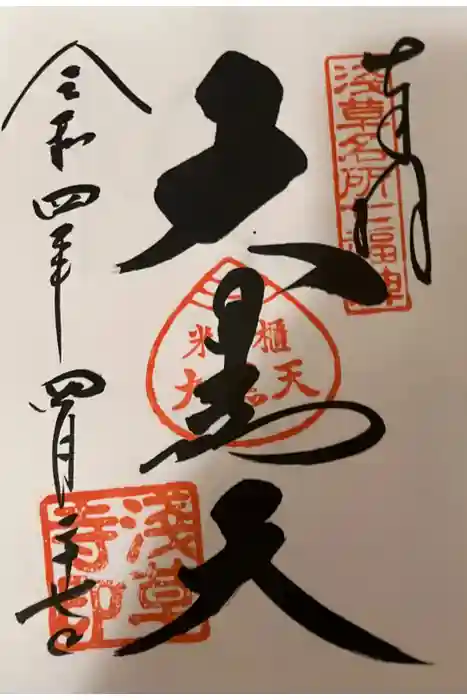 奉拝
浅草名所七福神
大黒天
米櫃
大黒天
浅草
寺印
令和四年四月二十七日